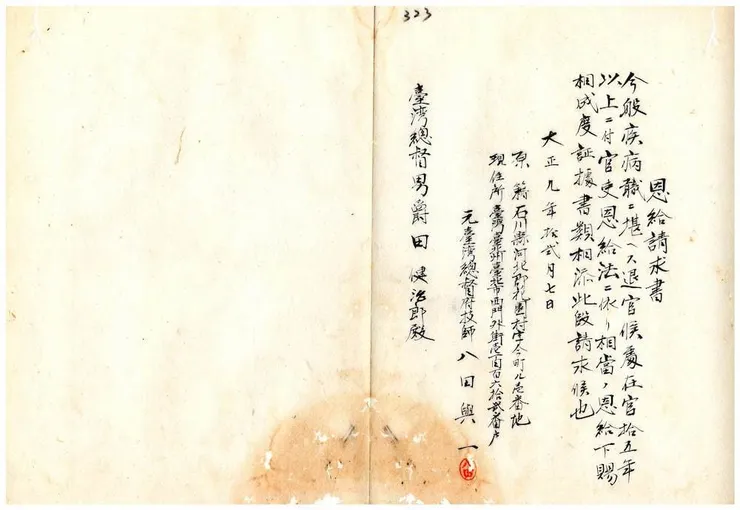 323
恩給請求書
今般疾病職ニ堪ヘス退官候處在官拾五年
以上ニ付官吏恩給法ニ依リ相當ノ恩給下賜
相成度証據書類相添此段請求候也
大正九年拾弐月七日
原籍石川縣河北郡花園村字今町ル壱番地
現住所臺灣臺北州臺北市西門外街壱百六拾弐番戸
元臺灣總督府技師 八田與一
臺灣總督男爵田健治郎殿
八田